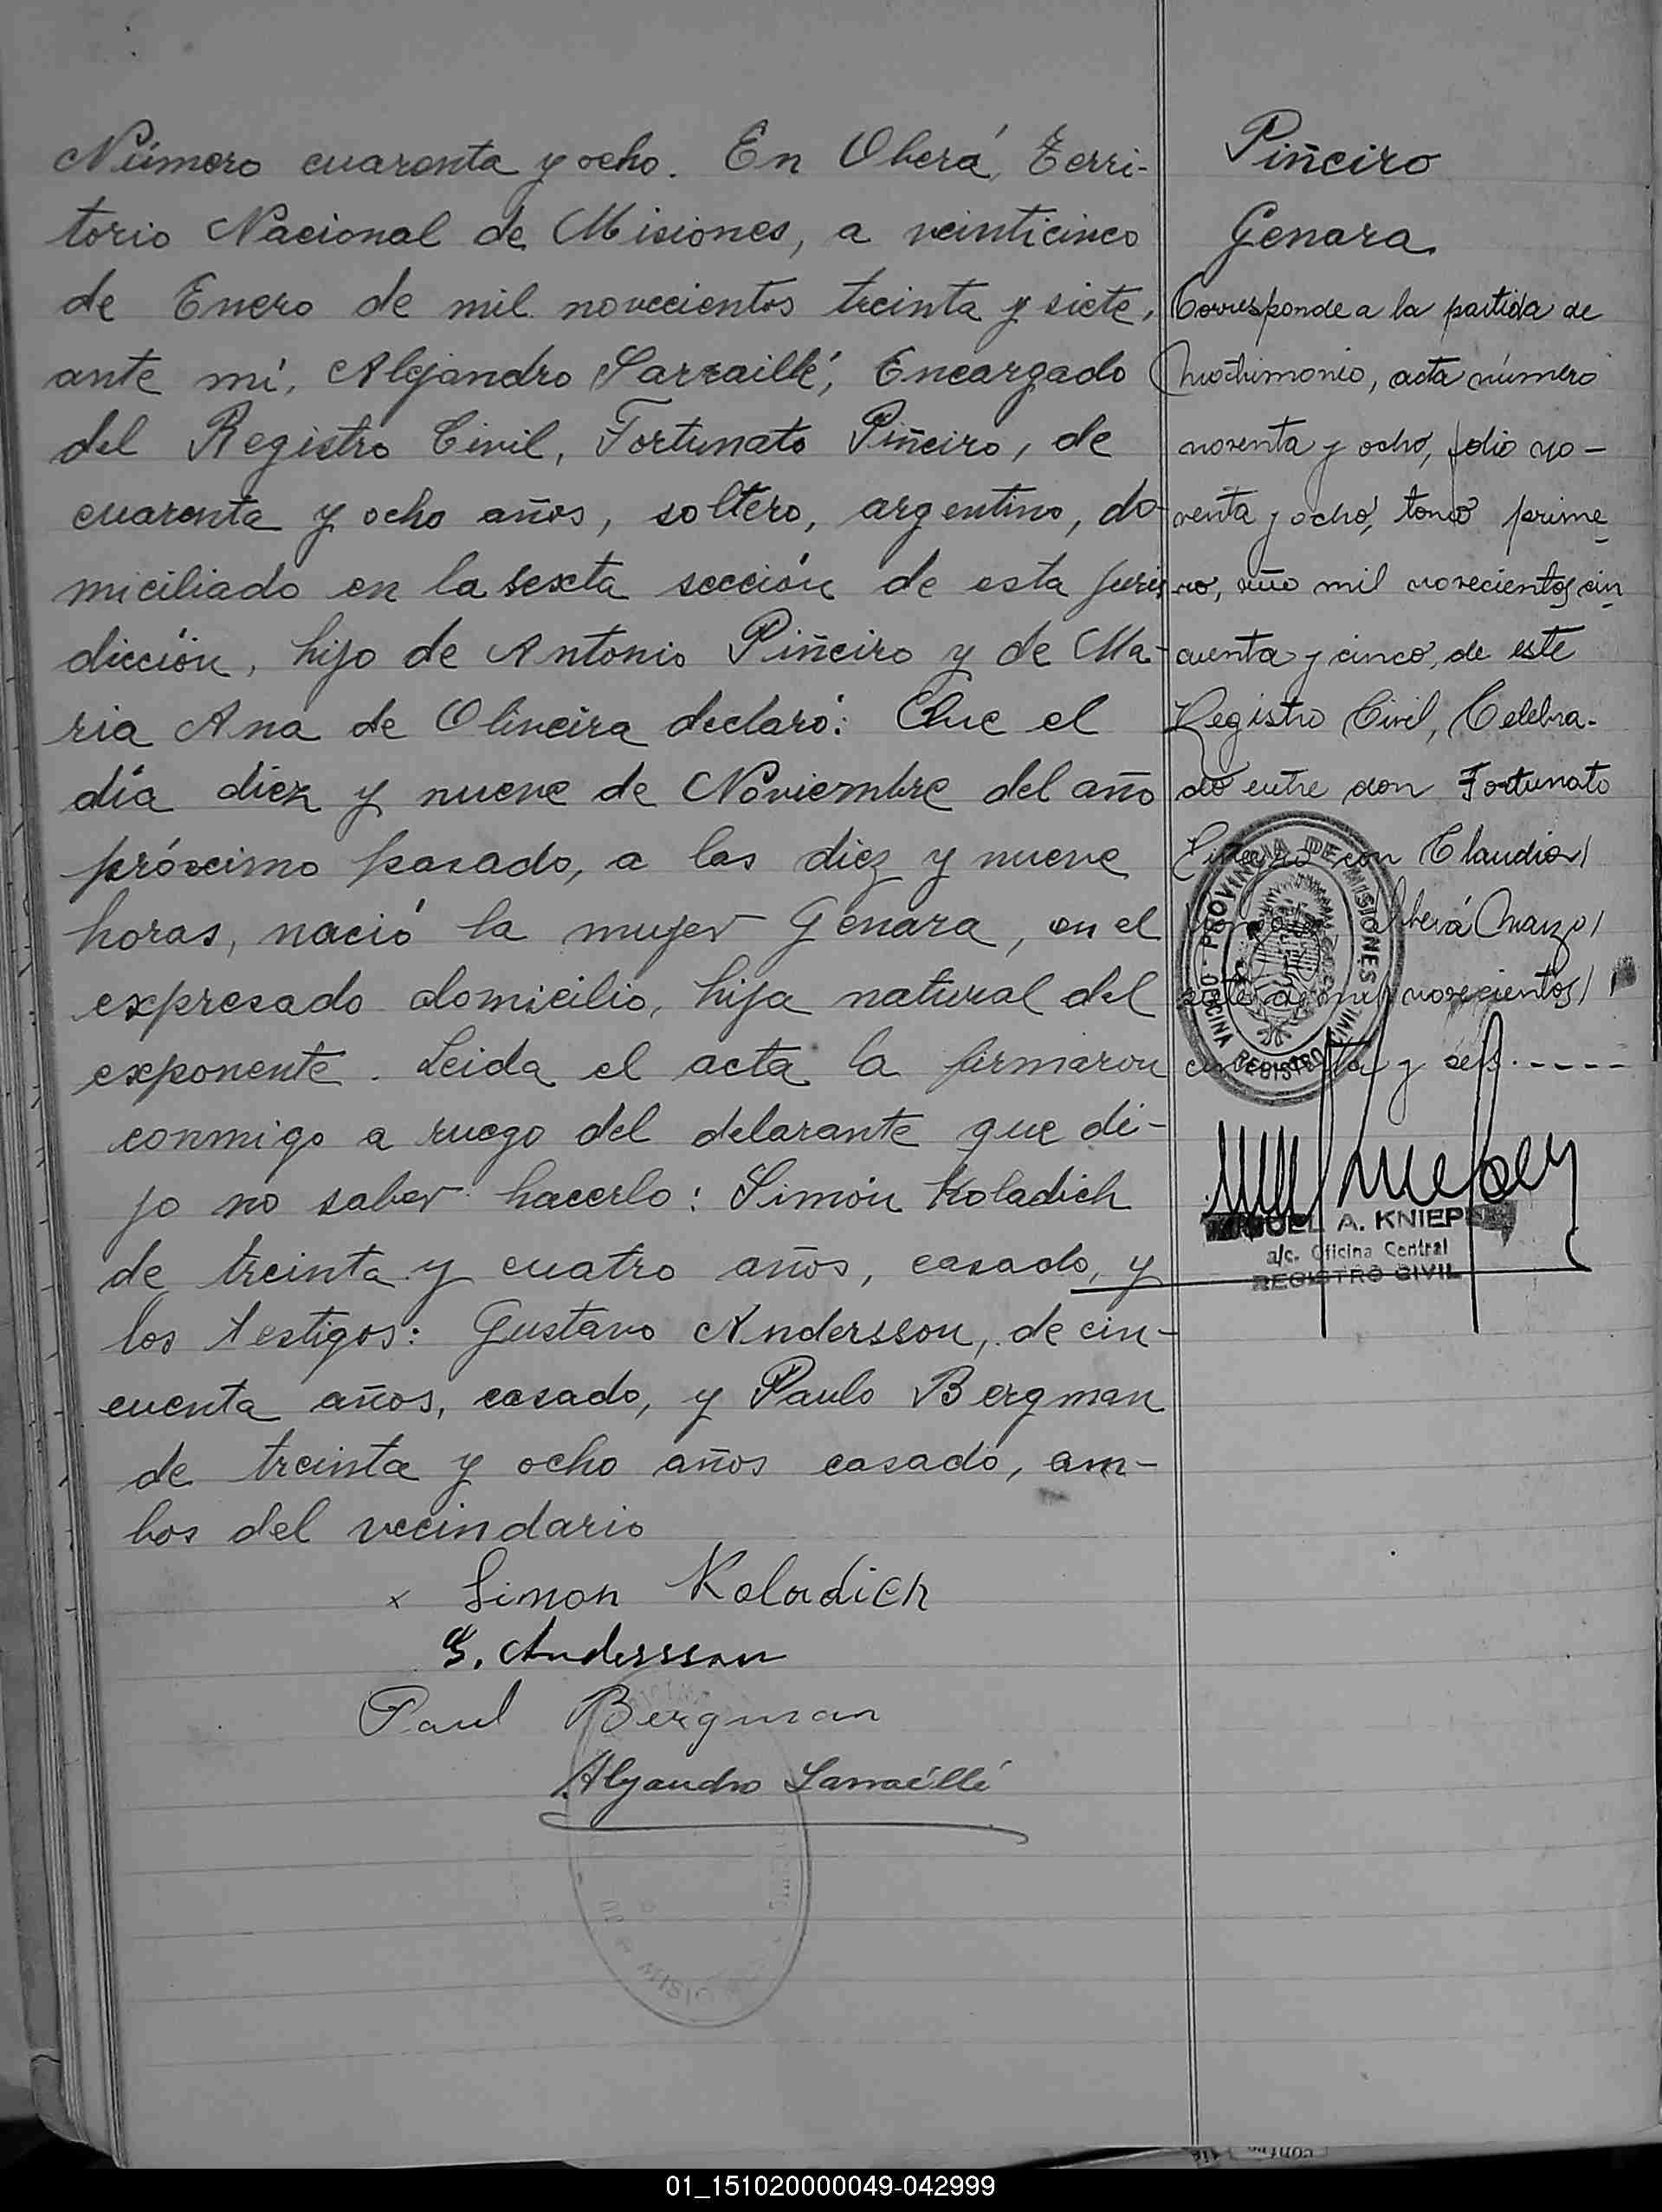 Número cuarenta y ocho. En Oberá, Terri-
torio Nacional de Misiones, a veinticinco
de Enero de mil novecientos treinta y siete,
ante mí, Alejandro Sarraillé, Encargado
del Registro Civil, Fortunato Piñeiro, de
cuarenta y ocho años, soltero, argentino, do-
miciliado en la sexta sección de esta juris
dicción, hijo de Antonio Piñeiro y de Ma-
ria Ana de Oliveira declaró: Que el
día diez y nueve de Noviembre del año
próximo pasado, a las diez y nueve
horas, nació la mujer Genara, en el
expresado domicilio, hija natural del
exponente. Leida el acta la firmaron
conmigo a ruego del delarante que di-
jo no saber hacerlo: Simón Koladich
de treinta y cuatro años, casado, y
los testigos: Gustavo Andersson, de cin-
cuenta años, casado, y Paulo Bergman
de treinta y ocho años casado, am-
bos del vecindario
x Simon Koladich
G. Andersson
Paul Bergman
Alejandro Sarraillé
Piñeiro
Genara
Corresponde a la partida de
Matrimonio, acta número
noventa y ocho, folio no-
venta y ocho, tomo prime
ro, año mil novecientos cin
cuenta y cinco, de este
Registro Civil, Celebra-
do entre don Fortunato
con Claudia
Oberá Marzo
siete de mil novecientos
y seis.----
PROVINCIA DE MISIONES
OFICINA REGISTRO
MIGUEL A. KNIEP
a/c. Oficina Central
REGISTRO CIVIL
01_151020000049-042999